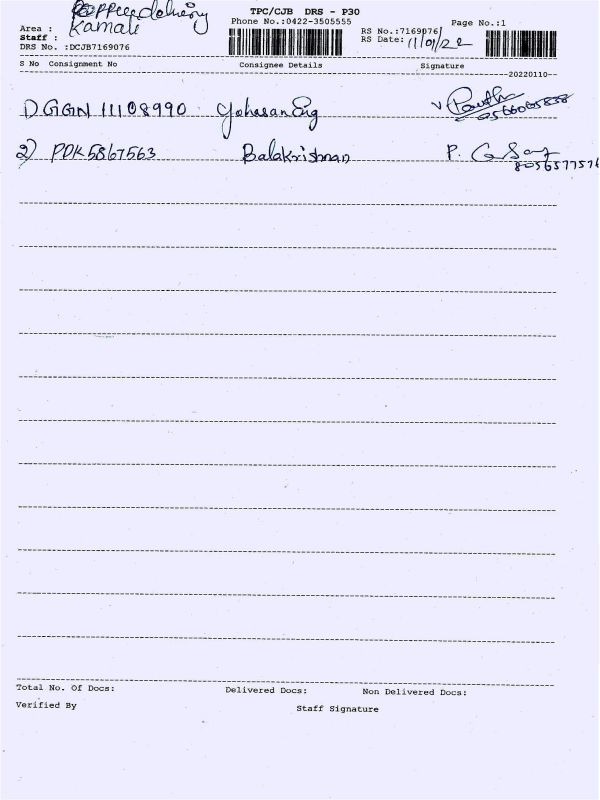 TPC/CJB DRS - P30
Area : delivery
Phone No.:0422-3505555 Page No.:1
Staff : Kamali
RS No.:7169076
DRS No. :DCJB7169076
RS Date: 11/01/22
S No Consignment No Consignee Details Signature
20220110
1) GGN 11108990
2) PDK5867563 Balakrishnan P.
Total No. Of Docs: Delivered Docs: Non Delivered Docs:
Verified By Staff Signature